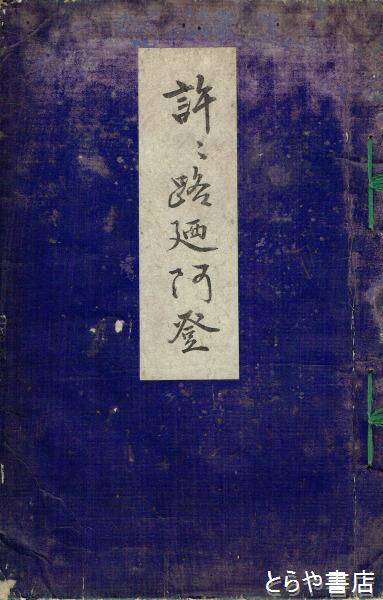 許〻路廼阿登
とらや書店